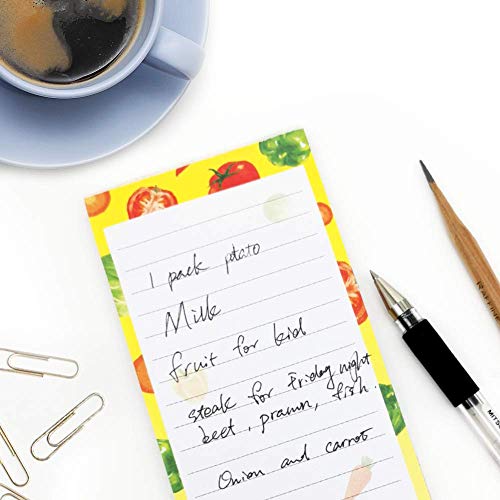 1 pack potato
Milk
fruit for kid
steak for Friday night
beet, prawn, fish.
Onion and carrot